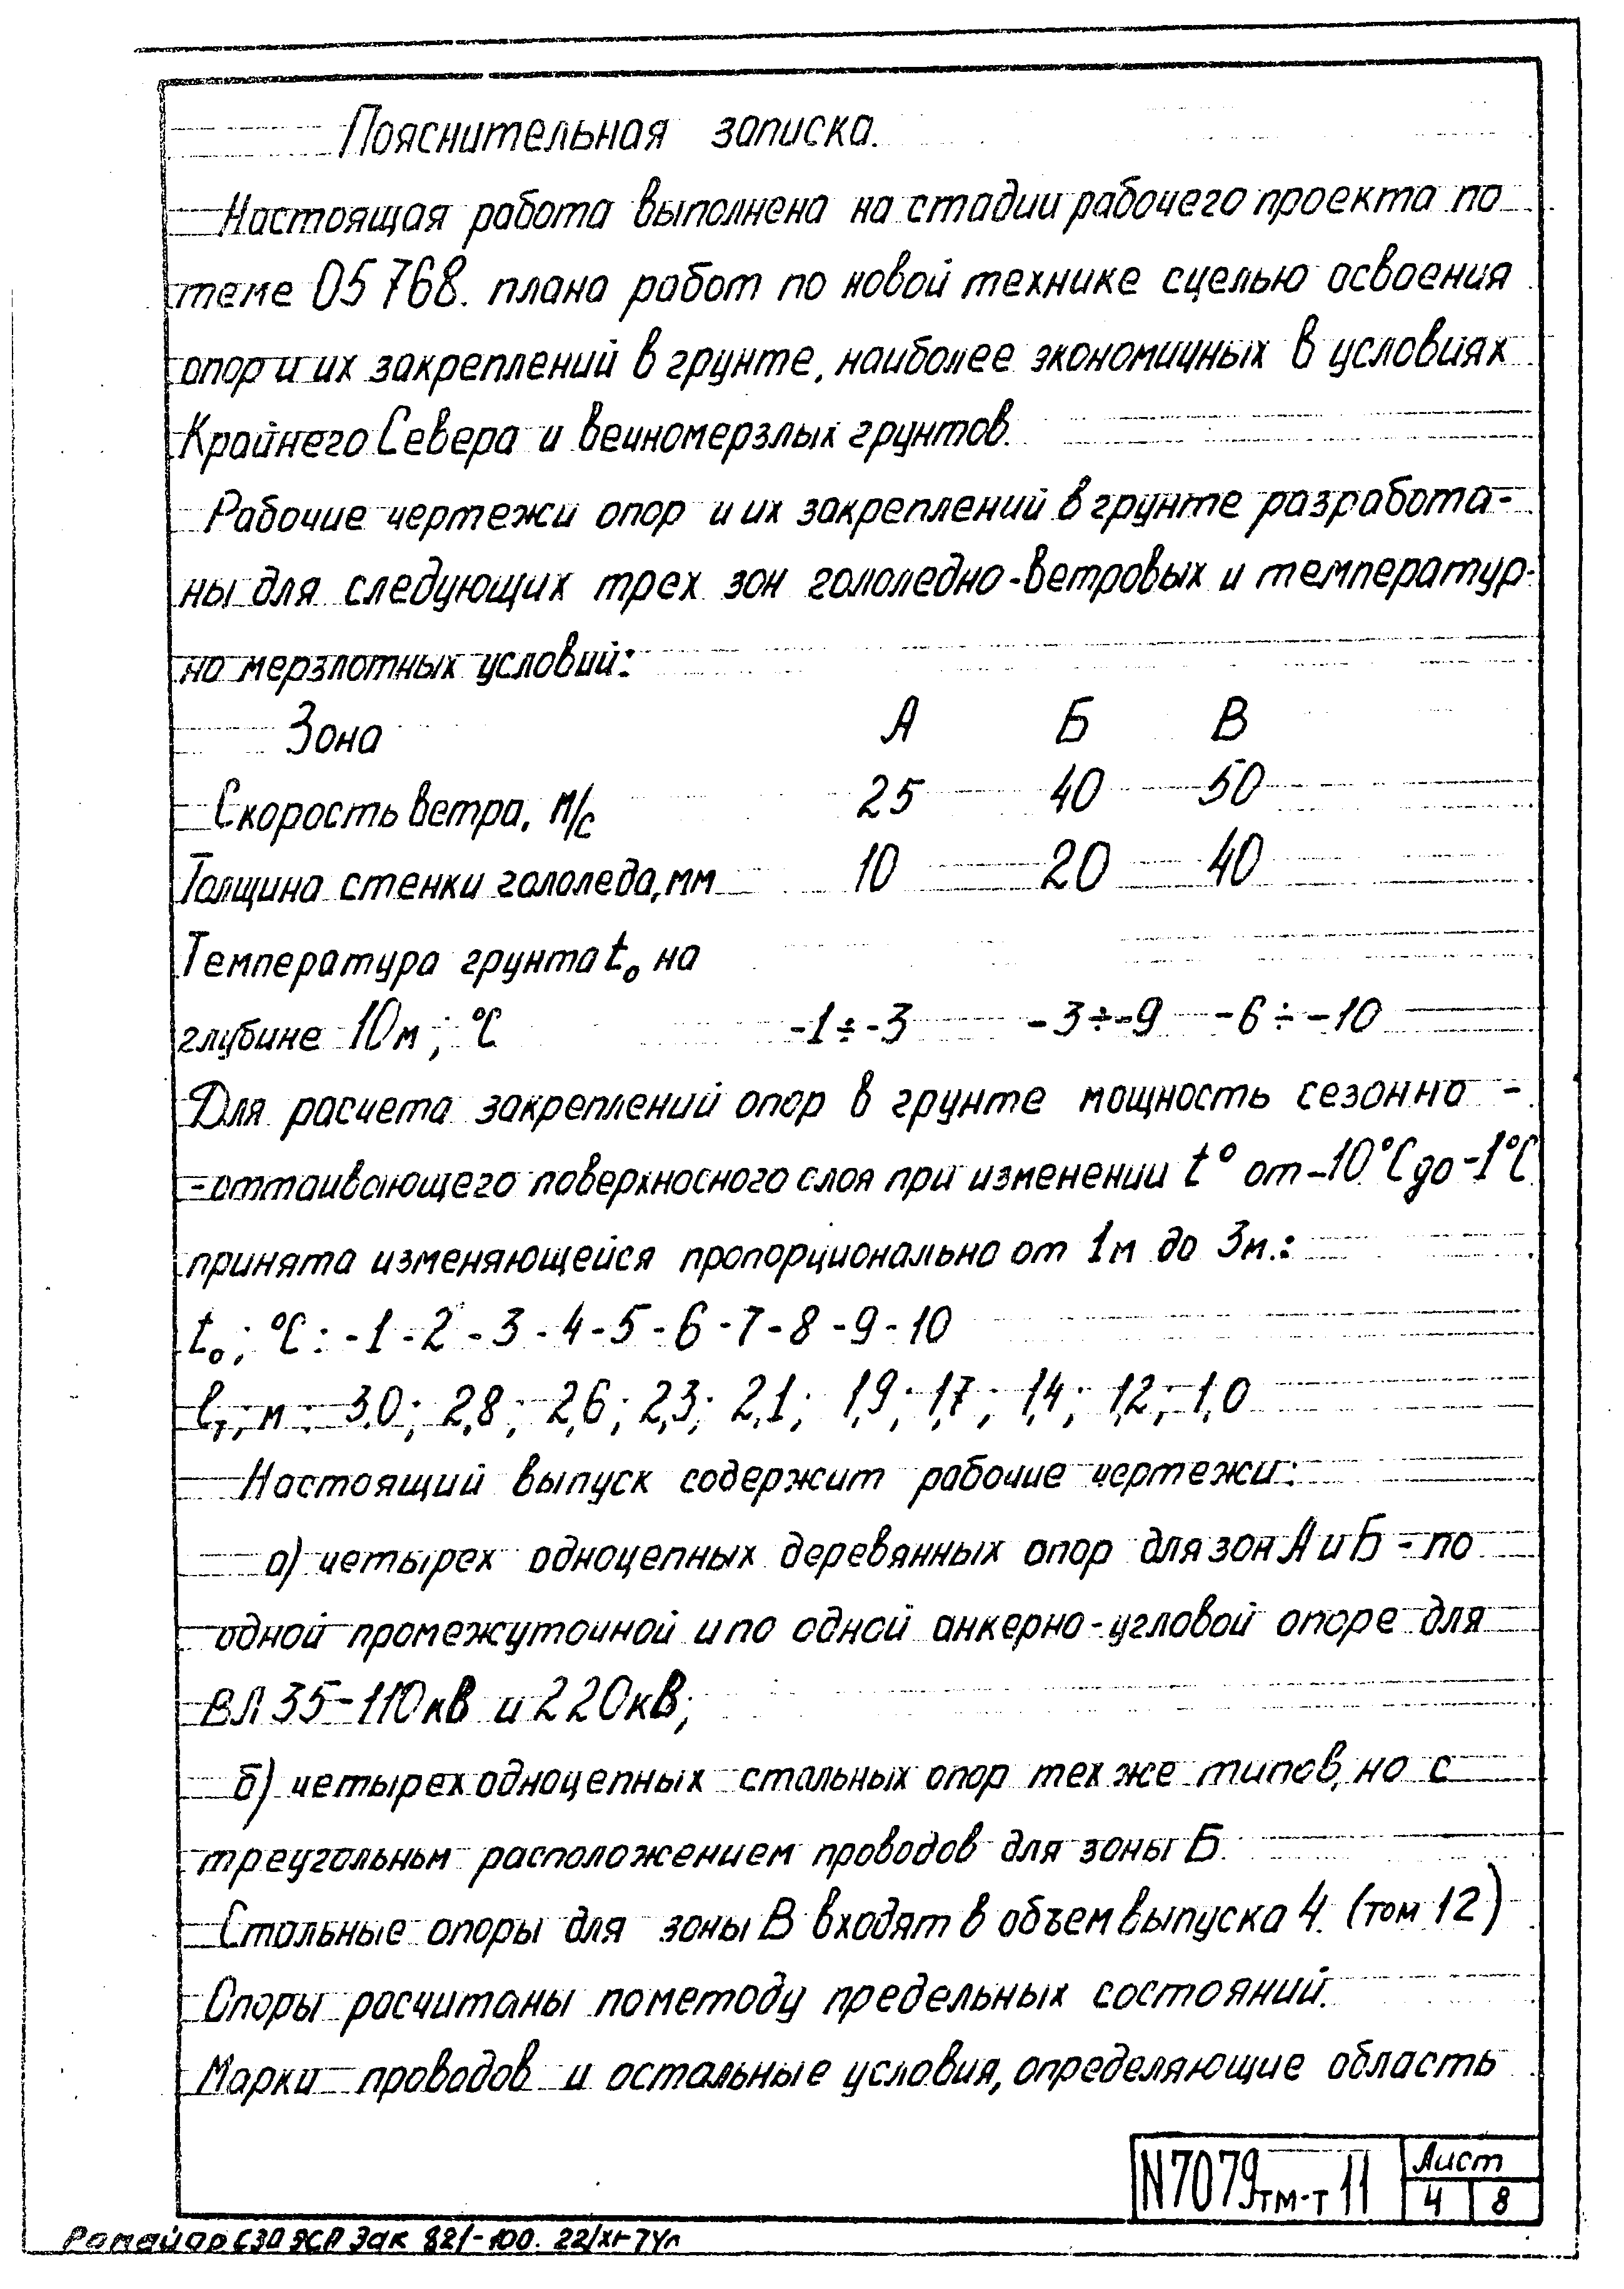 Пояснительная записка.
Настоящая работа выполнена на стадии рабочего проекта по
теме 05768. плана работ по новой технике с целью освоения
опор и их закреплений в грунте, наиболее экономичных в условиях
Крайнего Севера и вечномерзлых грунтов.
Рабочие чертежи опор и их закреплений в грунте разработа-
ны для следующих трех зон гололедно-ветровых и температур-
но мерзлотных условий:
Зона А Б В
Скорость ветра, м/с 25 40 50
Толщина стенки гололеда, мм 10 20 40
Температура грунта t₀ на
глубине 10м; °C -1÷-3 -3÷-9 -6÷-10
Для расчета закреплений опор в грунте мощность сезонно-
-оттаивающего поверхносного слоя при изменении t° от -10°C до -1°C
принята изменяющейся пропорционально от 1м до 3м.:
t₀; °C: -1 -2 -3 -4 -5 -6 -7 -8 -9 -10
lт; м: 3.0; 2,8; 2,6; 2,3; 2,1; 1,9; 1,7; 1,4; 1,2; 1,0
Настоящий выпуск содержит рабочие чертежи:
а) четырех одноцепных деревянных опор для зон А и Б - по
одной промежуточной и по одной анкерно-угловой опоре для
ВЛ 35-110кв и 220кв;
б) четырех одноцепных стальных опор тех же типов, но с
треугольным расположением проводов для зоны Б.
Стальные опоры для зоны В входят в объем выпуска 4. (том 12)
Опоры расчитаны по методу предельных состояний.
Марки проводов и остальные условия, определяющие область
N7079тм-т11
Лист
4 8
Зак 821-100. 22/XI-74г